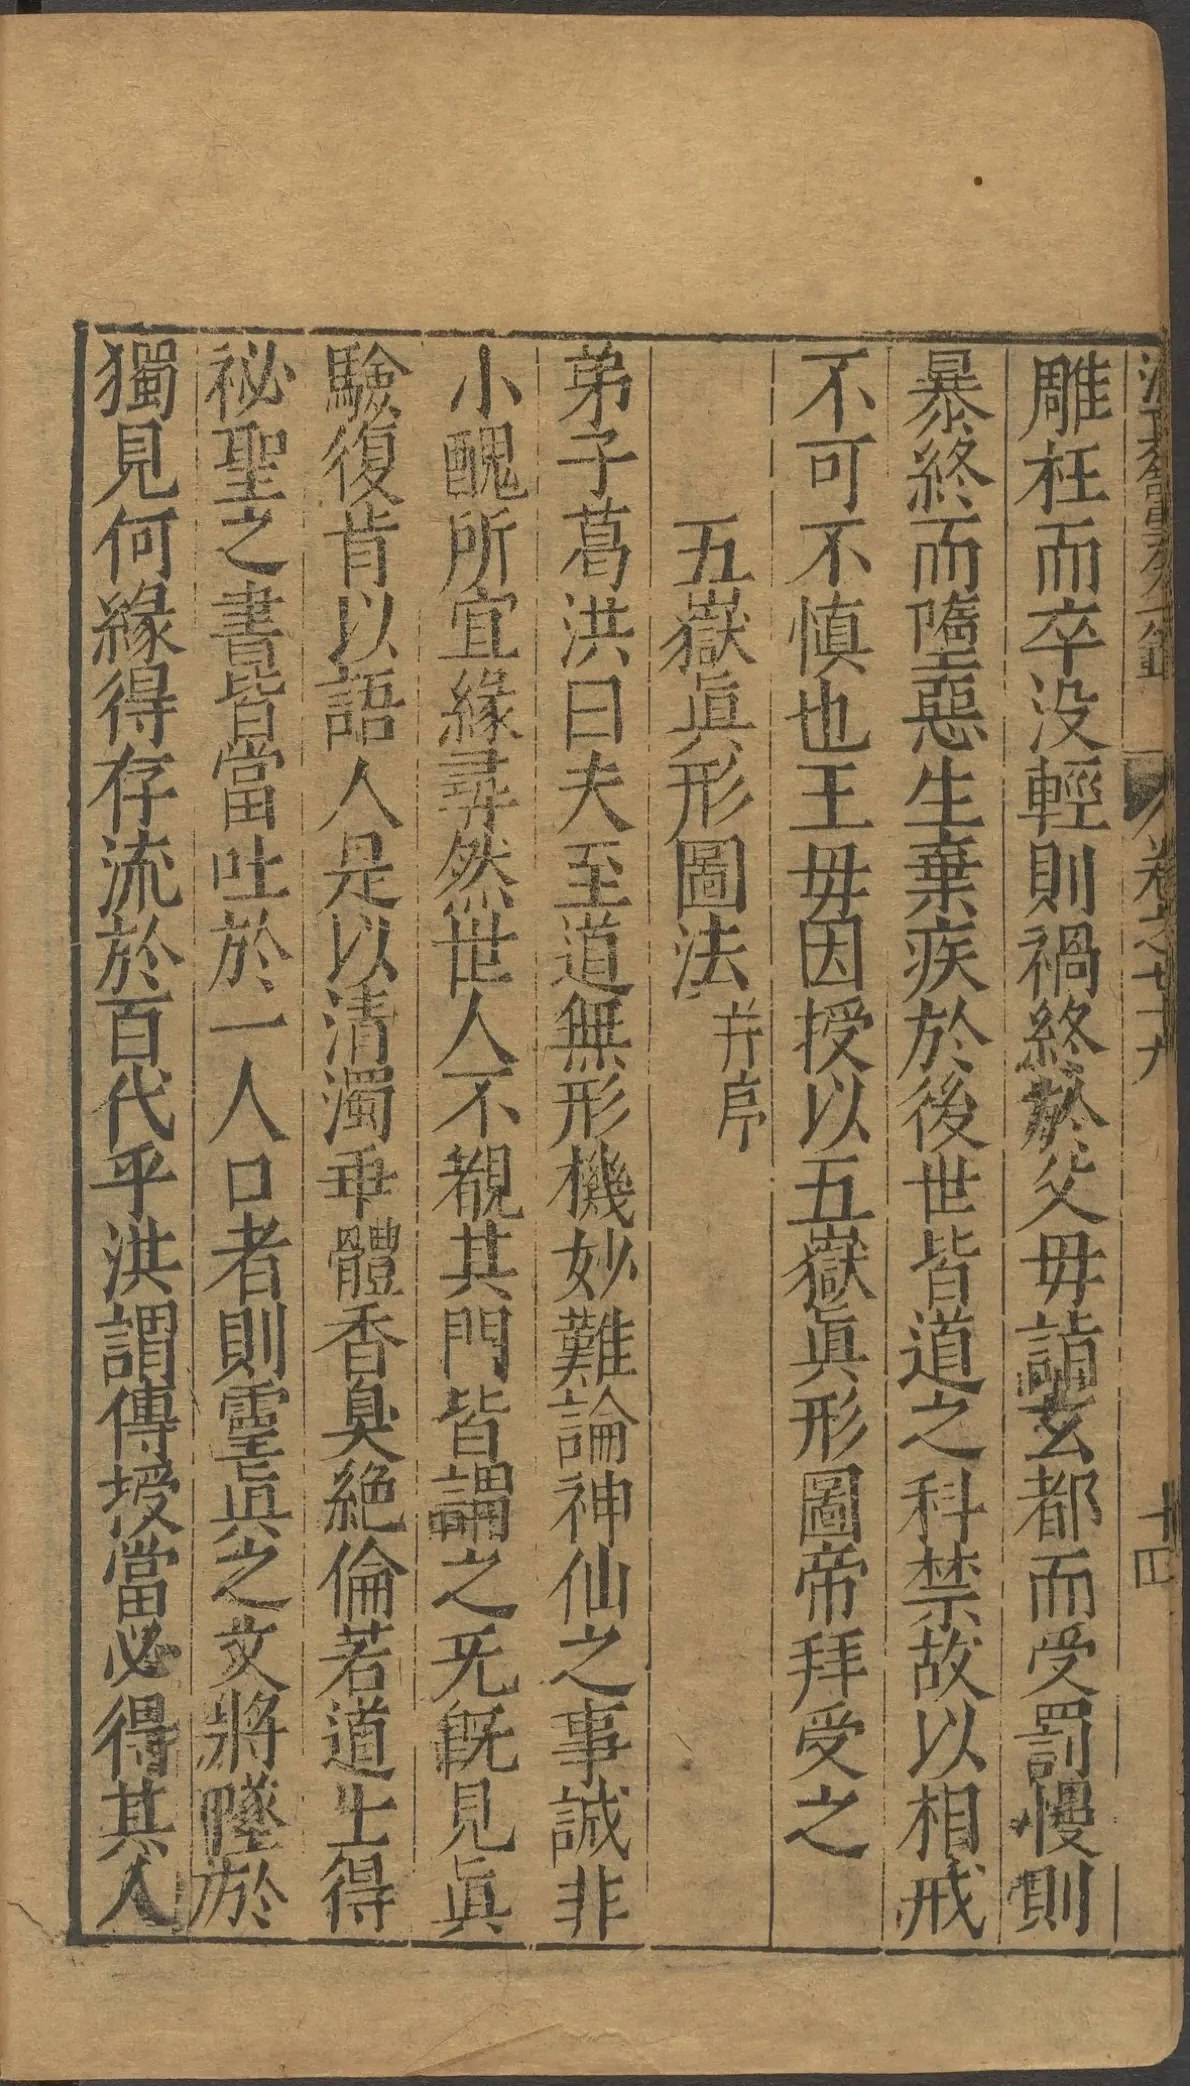 卷之七十九
十四
雕枉而卒没輕則禍終於父毋詣玄都而受罰慢則
暴終而墮惡生棄疾於後世皆道之科禁故以相戒
不可不慎也王毋因授以五嶽眞形圖帝拜受之
五嶽眞形圖法并序
弟子葛洪曰夫至道無形機妙難論神仙之事誠非
小醜所宜緣尋然世人不覩其門皆謂之旡旣見眞
驗復肯以語人是以清濁乖體香臭絶倫若道士得
祕聖之書皆當吐於一人口者則靈眞之文將墜於
獨見何緣得存流於百代乎洪謂傳授當必得其人